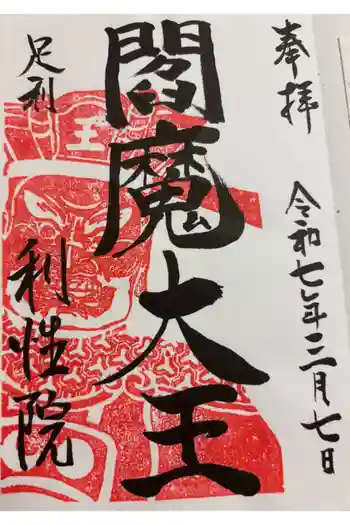 奉拝
令和七年三月七日
閻魔大王
足利
利性院
王